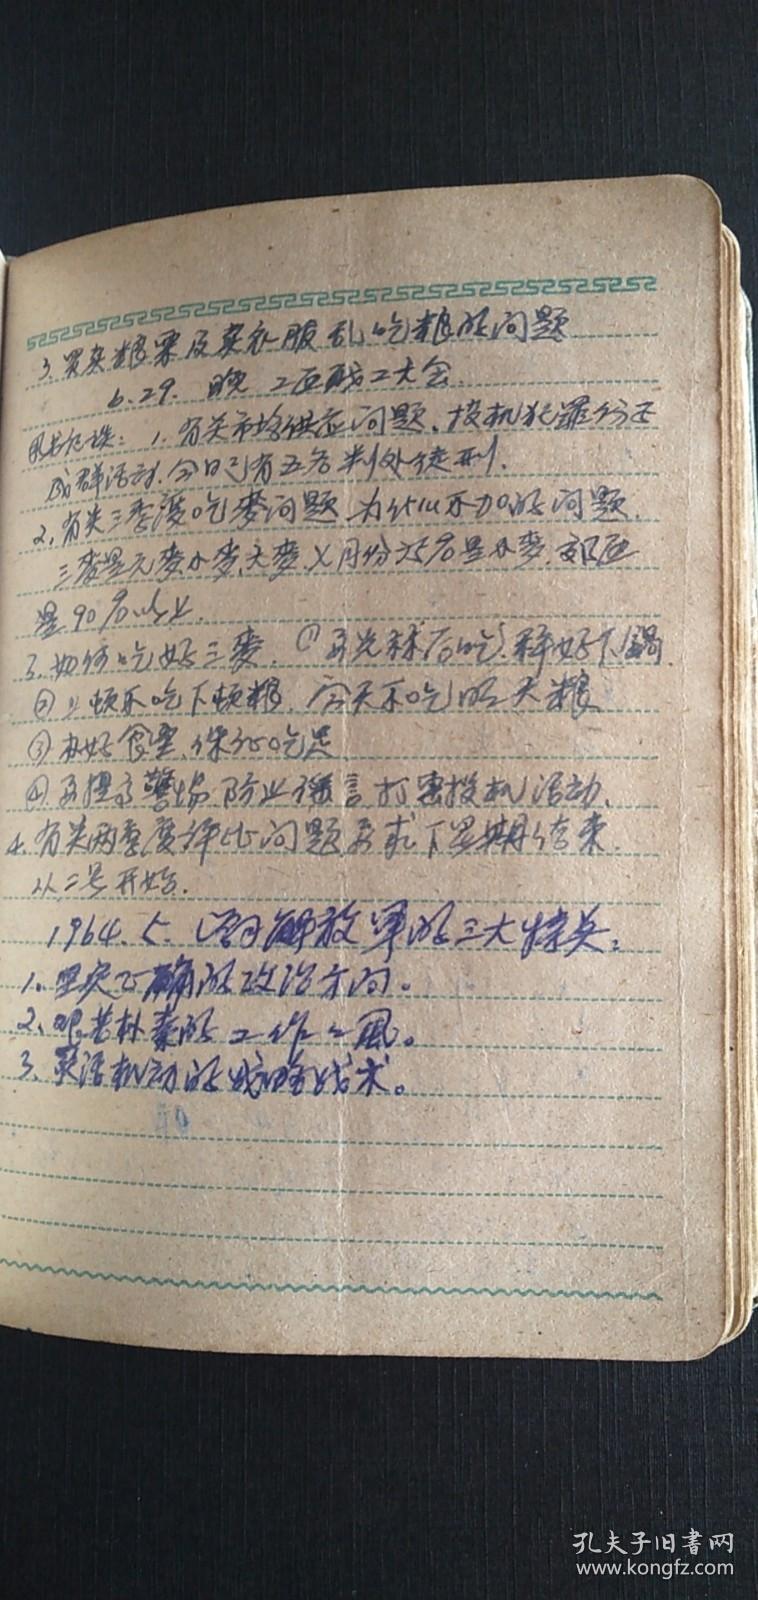 3、买卖粮票及卖衣服乱吃粮的问题
6.29. 晚 工区职工大会
1. 有关市场供应问题、投机犯罪份子
成群活动、今日已有五名判处徒刑.
2、有关三季度吃麦问题 为什么不加的问题.
三麦是元麦小麦、大麦、X月份75%是小麦.
是90%以上.
3、如何吃好三麦. ① 下锅.
②上顿不吃下顿粮、今天不吃明天粮
③办好食堂、保证吃足
④要提高警惕 防止谣言 打击投机活动、
4、有关两季度评比问题要求下星期结束.
从二号开始.
1964.5. 学习解放军的三大特点:
1、坚定正确的政治方向。
2、艰苦朴素的工作作風。
3、灵活机动的战略战术。
孔夫子旧書网
www.kongfz.com